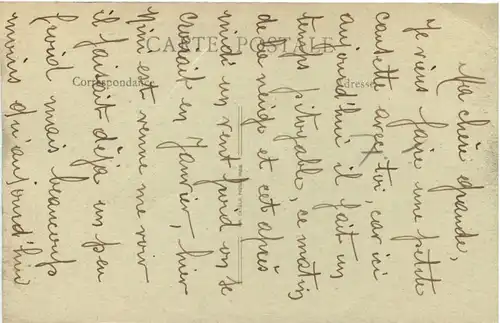 CARTE POSTALE
Correspondance
Adresse
Ma chère grande,
Je viens faire une petite
causette avec toi, car ici
aujourd'hui il fait un
temps pitoyable, ce matin
de la neige et cet après
midi un vent froid on se
croirait en Janvier, hier
Nini est venue me voir
il faisait déjà un peu
froid mais beaucoup
moins qu'aujourd'hui